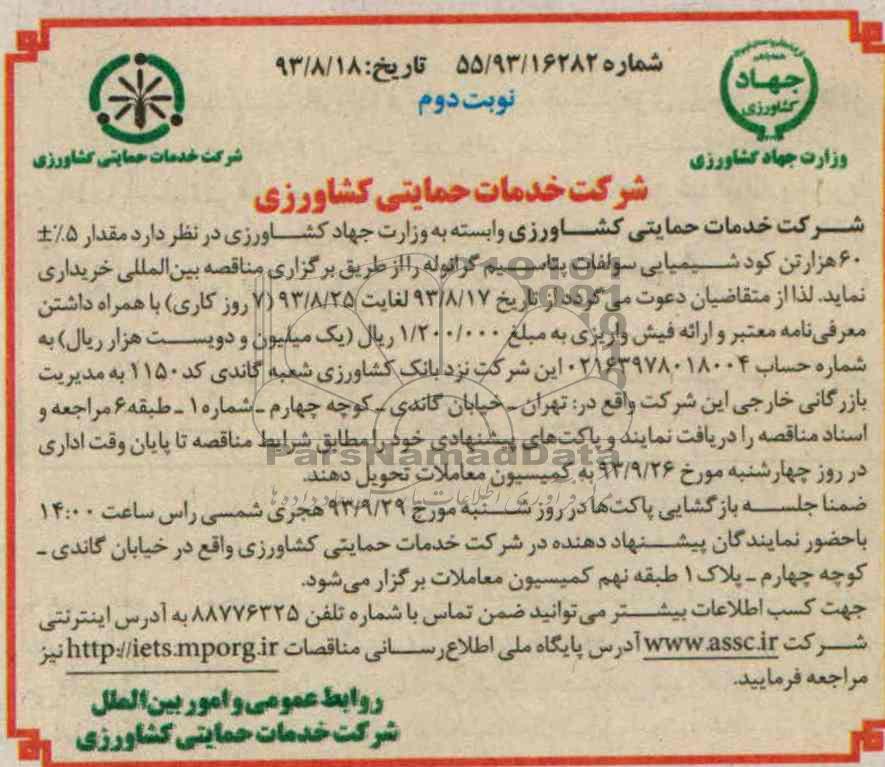 شماره ۵۵/۹۳/۱۶۲۸۲ تاریخ: ۹۳/۸/۱۸
نوبت دوم
جهاد
کشاورزی
وزارت جهاد کشاورزی
شرکت خدمات حمایتی کشاورزی
شرکت خدمات حمایتی کشاورزی
شرکت خدمات حمایتی کشاورزی وابسته به وزارت جهاد کشاورزی در نظر دارد مقدار ۵٪±
۶۰ هزار تن کود شیمیایی سولفات پتاسیم گرانوله را از طریق برگزاری مناقصه بین‌المللی خریداری
نماید. لذا از متقاضیان دعوت می‌گردد از تاریخ ۹۳/۸/۱۷ لغایت ۹۳/۸/۲۵ (۷ روز کاری) با همراه داشتن
معرفی‌نامه معتبر و ارائه فیش واریزی به مبلغ ۱/۲۰۰/۰۰۰ ریال (یک میلیون و دویست هزار ریال) به
شماره حساب ۰۲۱۶۳۹۷۸۰۱۸۰۰۴ این شرکت نزد بانک کشاورزی شعبه گاندی کد ۱۱۵۰ به مدیریت
بازرگانی خارجی این شرکت واقع در: تهران ـ خیابان گاندی ـ کوچه چهارم ـ شماره ۱ ـ طبقه ۶ مراجعه و
اسناد مناقصه را دریافت نمایند و پاکت‌های پیشنهادی خود را مطابق شرایط مناقصه تا پایان وقت اداری
در روز چهارشنبه مورخ ۹۳/۹/۲۶ به کمیسیون معاملات تحویل دهند.
ضمنا جلسه بازگشایی پاکت‌ها در روز شنبه مورخ ۹۳/۹/۲۹ هجری شمسی راس ساعت ۱۴:۰۰
باحضور نمایندگان پیشنهاد دهنده در شرکت خدمات حمایتی کشاورزی واقع در خیابان گاندی ـ
کوچه چهارم ـ پلاک ۱ طبقه نهم کمیسیون معاملات برگزار می‌شود.
جهت کسب اطلاعات بیشتر می‌توانید ضمن تماس با شماره تلفن ۸۸۷۷۶۳۲۵ به آدرس اینترنتی
شرکت www.assc.ir آدرس پایگاه ملی اطلاع‌رسانی مناقصات http://iets.mporg.ir نیز
مراجعه فرمایید.
روابط عمومی و امور بین‌الملل
شرکت خدمات حمایتی کشاورزی
ParsNamadData